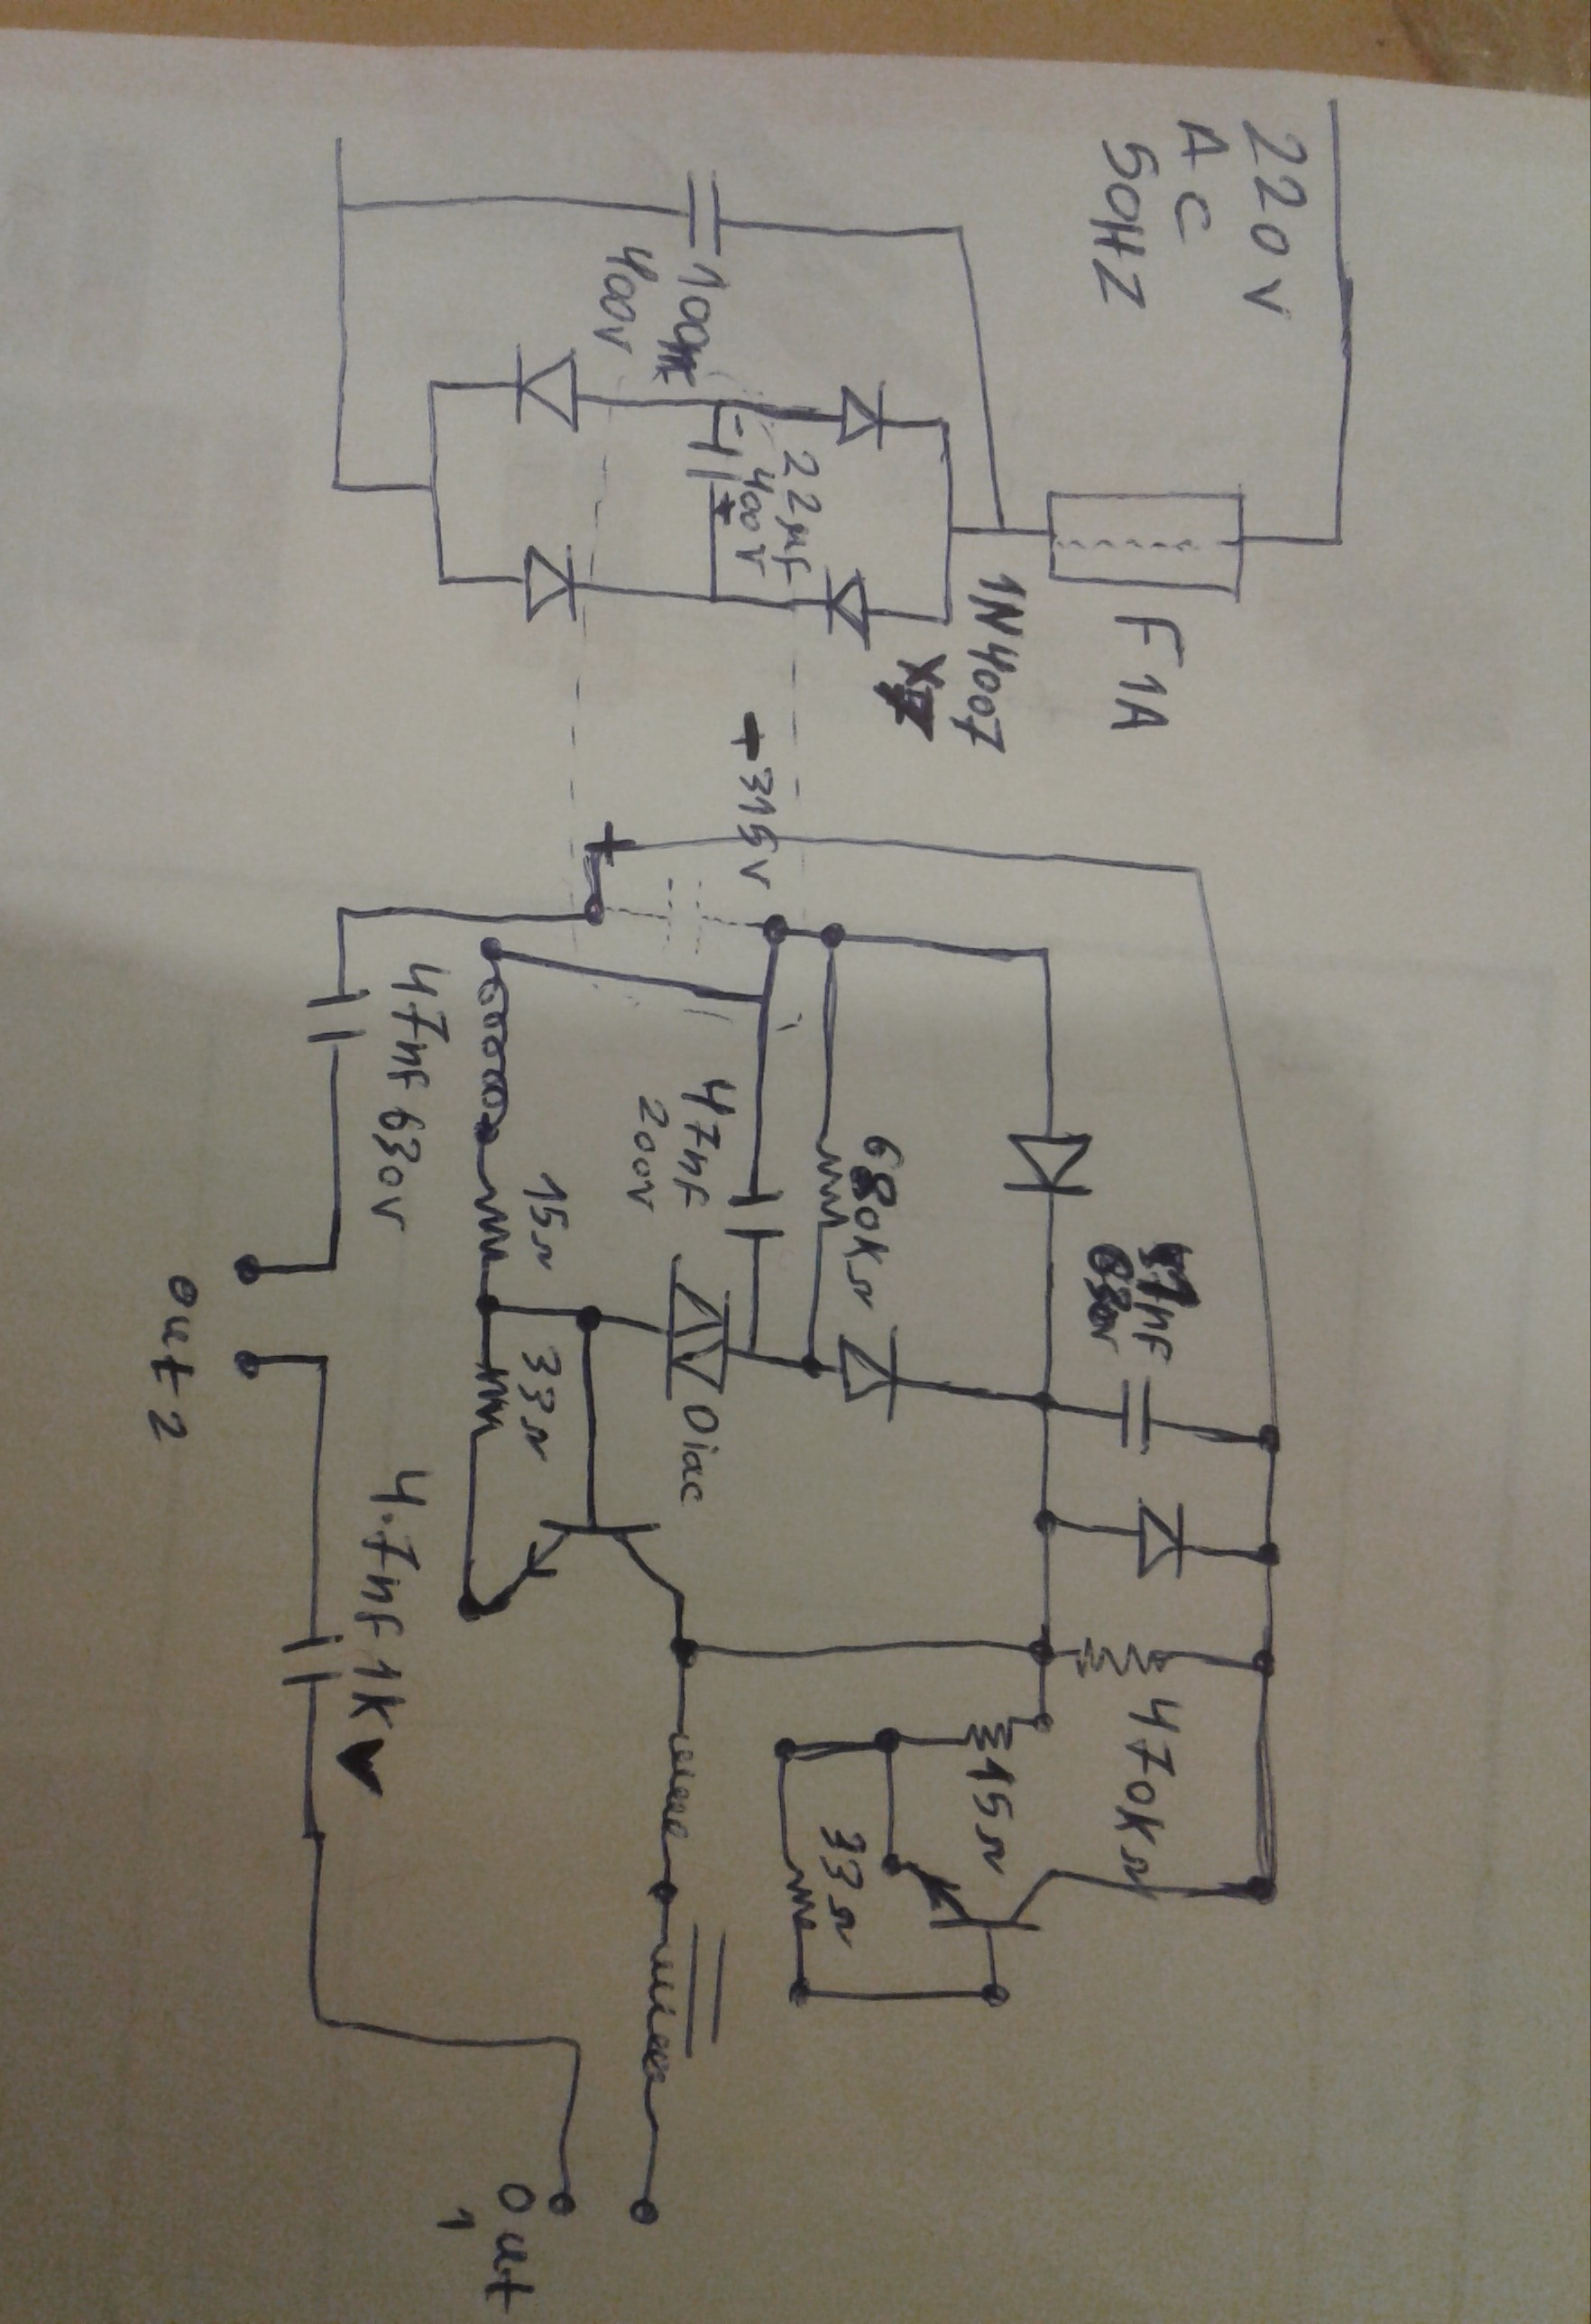 220V
AC
50HZ
F 1A
1N4007
X4
100n
400V
22µF
400V
- +
+315V
+
680KΩ
47nF
630V
47nF
200V
15Ω
33Ω
Diac
470KΩ
15Ω
33Ω
47nF 630V
4.7nF 1KV
out 2
out
1